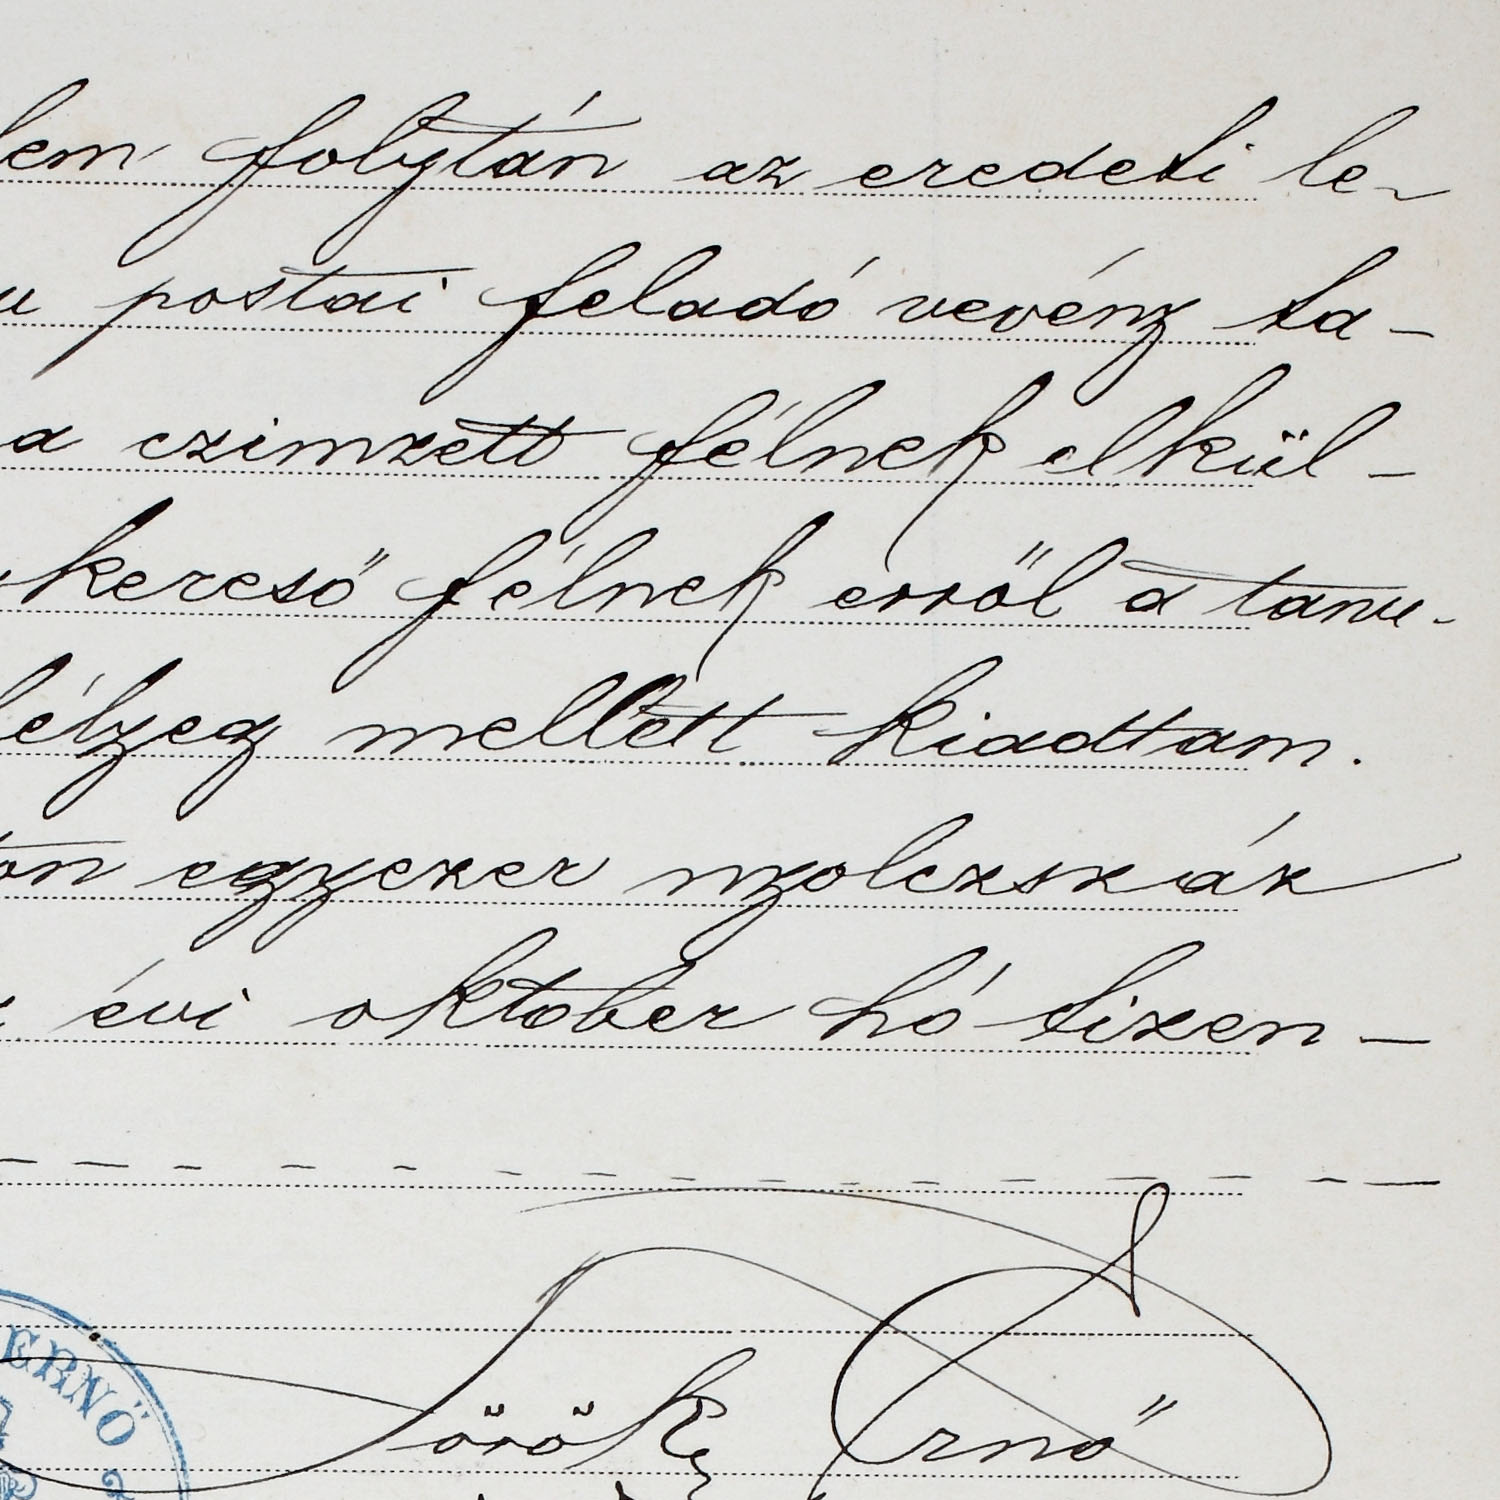 lem folytán az eredeti le-
u postai feladó vevény ta-
a czimzett félnek elkül-
kereső félnek erről a tanu-
bélyeg mellett kiadtam.
ton egyezer nyolczszáz
évi oktober hó tizen-
Török Ernő
ERNŐ